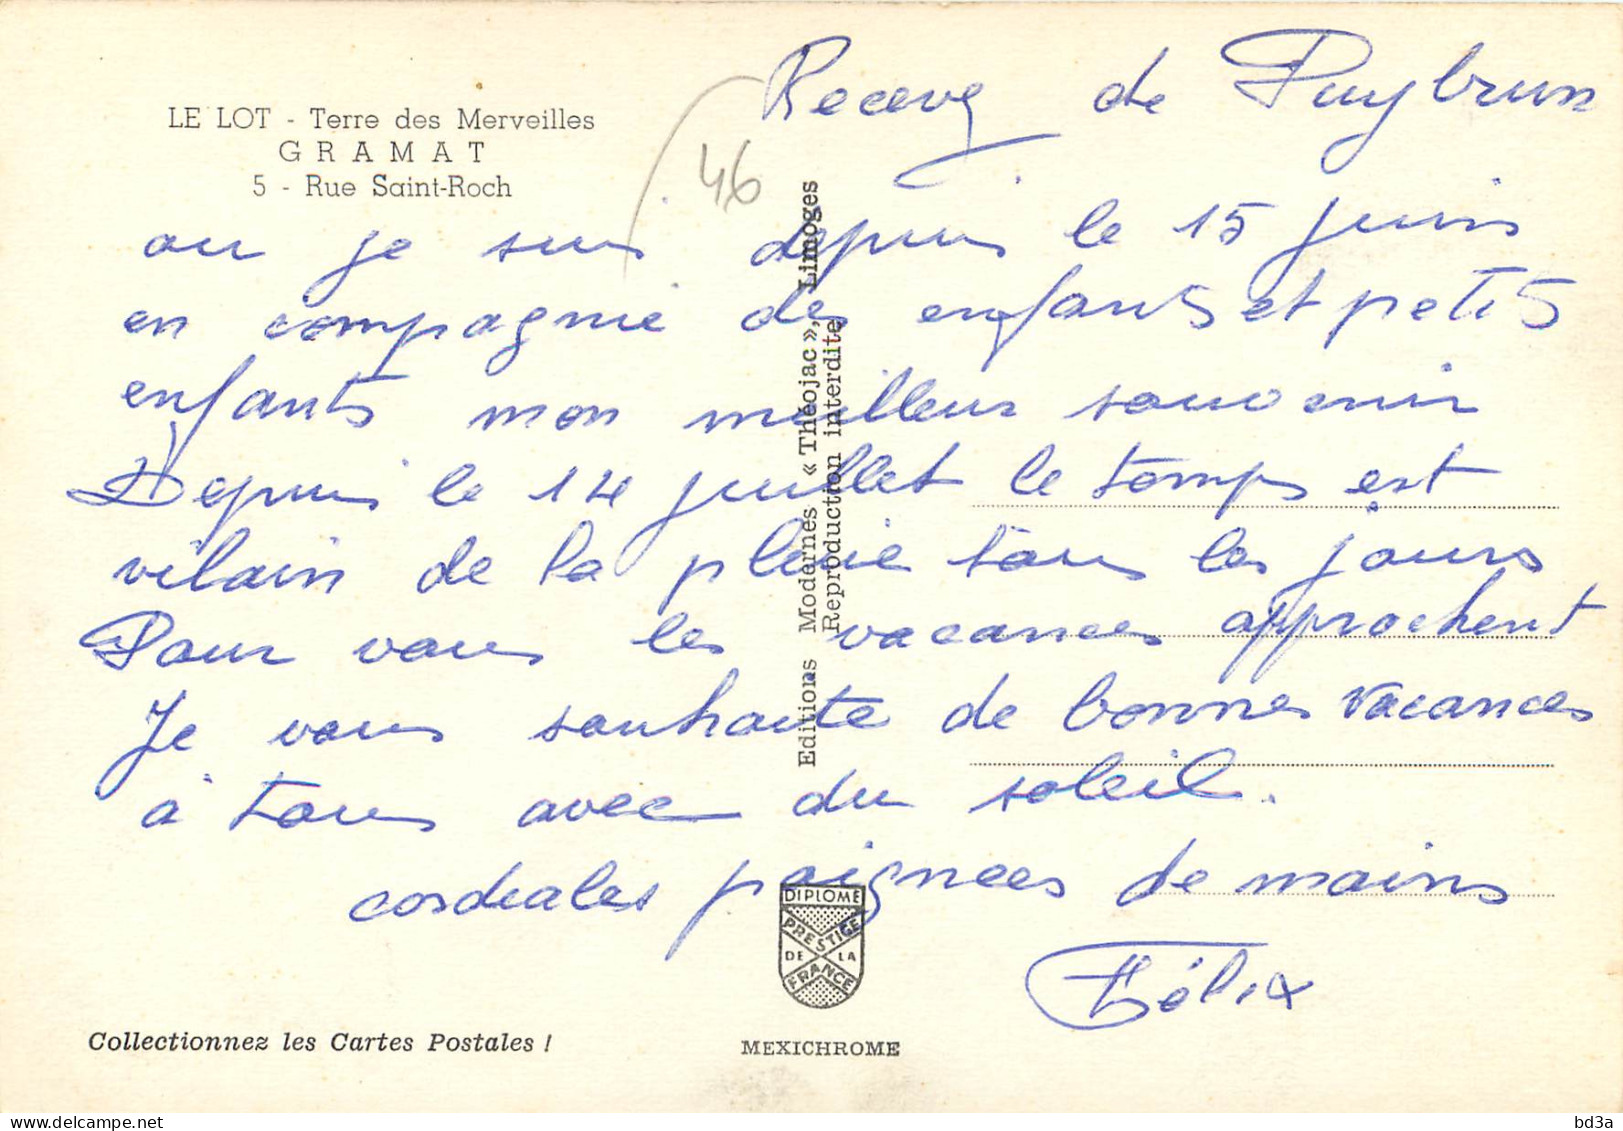 LE LOT - Terre des Merveilles
GRAMAT
5 - Rue Saint-Roch
46
Recevez de Puybrun
ou je suis depuis le 15 juin
en compagnie des enfants et petits
enfants mon meilleur souvenir
Depuis le 14 juillet le temps est
vilain de la pluie tous les jours
Pour vous les vacances approchent
Je vous souhaite de bonnes vacances
à tous avec du soleil.
cordiales poignées de mains
Félix
Editions Modernes « Théojac », Limoges
Reproduction interdite
DIPLOME
PRESTIGE
DE LA
FRANCE
Collectionnez les Cartes Postales !
MEXICHROME
bd3a